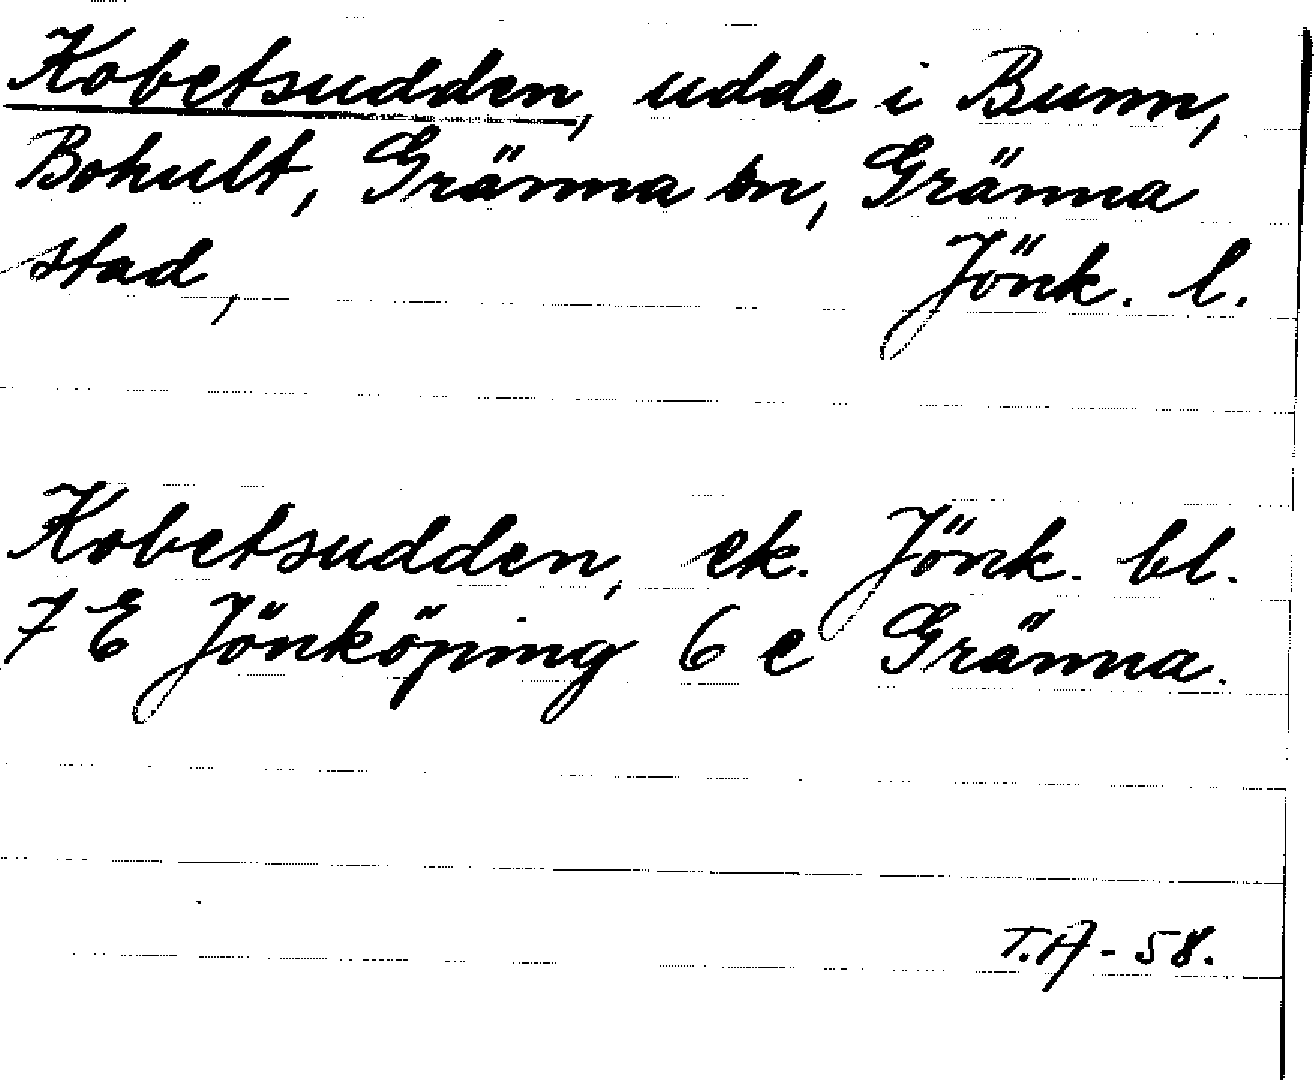 Kobetsudden, udde i Bunn,
Bohult, Gränna sn, Gränna
stad, Jönk. l.
Kobetsudden, ek. Jönk. bl.
7 E Jönköping 6 e Gränna.
T.A - 58.